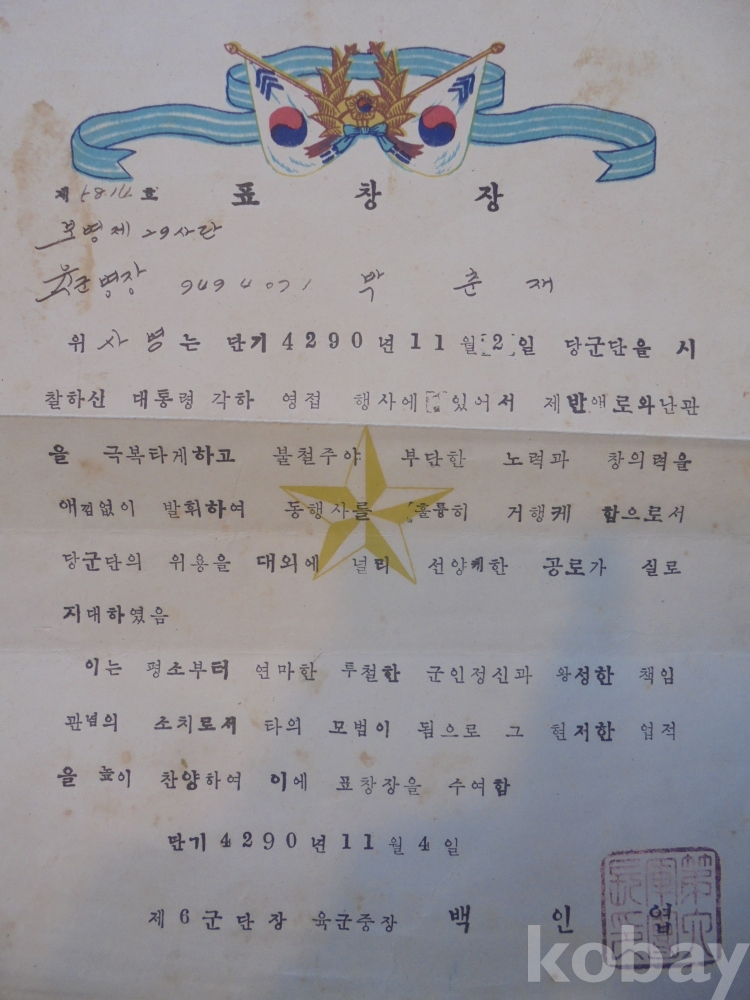 제 5814 호 표 창 장
보병 제 29 사단
육군병장 9494071 박 춘 재
위 사 병 는 단기 4290 년 11 월 2 일 당군단을 시
찰하신 대통령 각하 영접 행사에 있어서 제반애로와난관
을 극복타게하고 불철주야 부단한 노력과 창의력을
애낌없이 발휘하여 동행사를 훌륭히 거행케 함으로서
당군단의 위용을 대외에 널리 선양케한 공로가 실로
지대하였음
이는 평소부터 연마한 투철한 군인정신과 왕성한 책임
관념의 소치로서 타의 모범이 됨으로 그 현저한 업적
을 높이 찬양하여 이에 표창장을 수여함
단기 4290 년 11 월 4 일
제 6 군 단 장 육군중장 백 인 엽
第六軍團長印
kobay